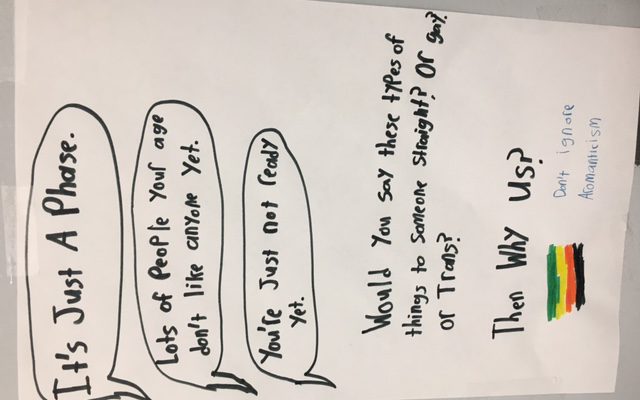 It's Just A Phase.
Lots of People Your age
don't like anyone Yet.
You're Just not ready
Yet.
Would You say these types of
things to Someone Straight? Or gay?
or Trans?
Then Why Us?
Don't ignore
Aromanticism